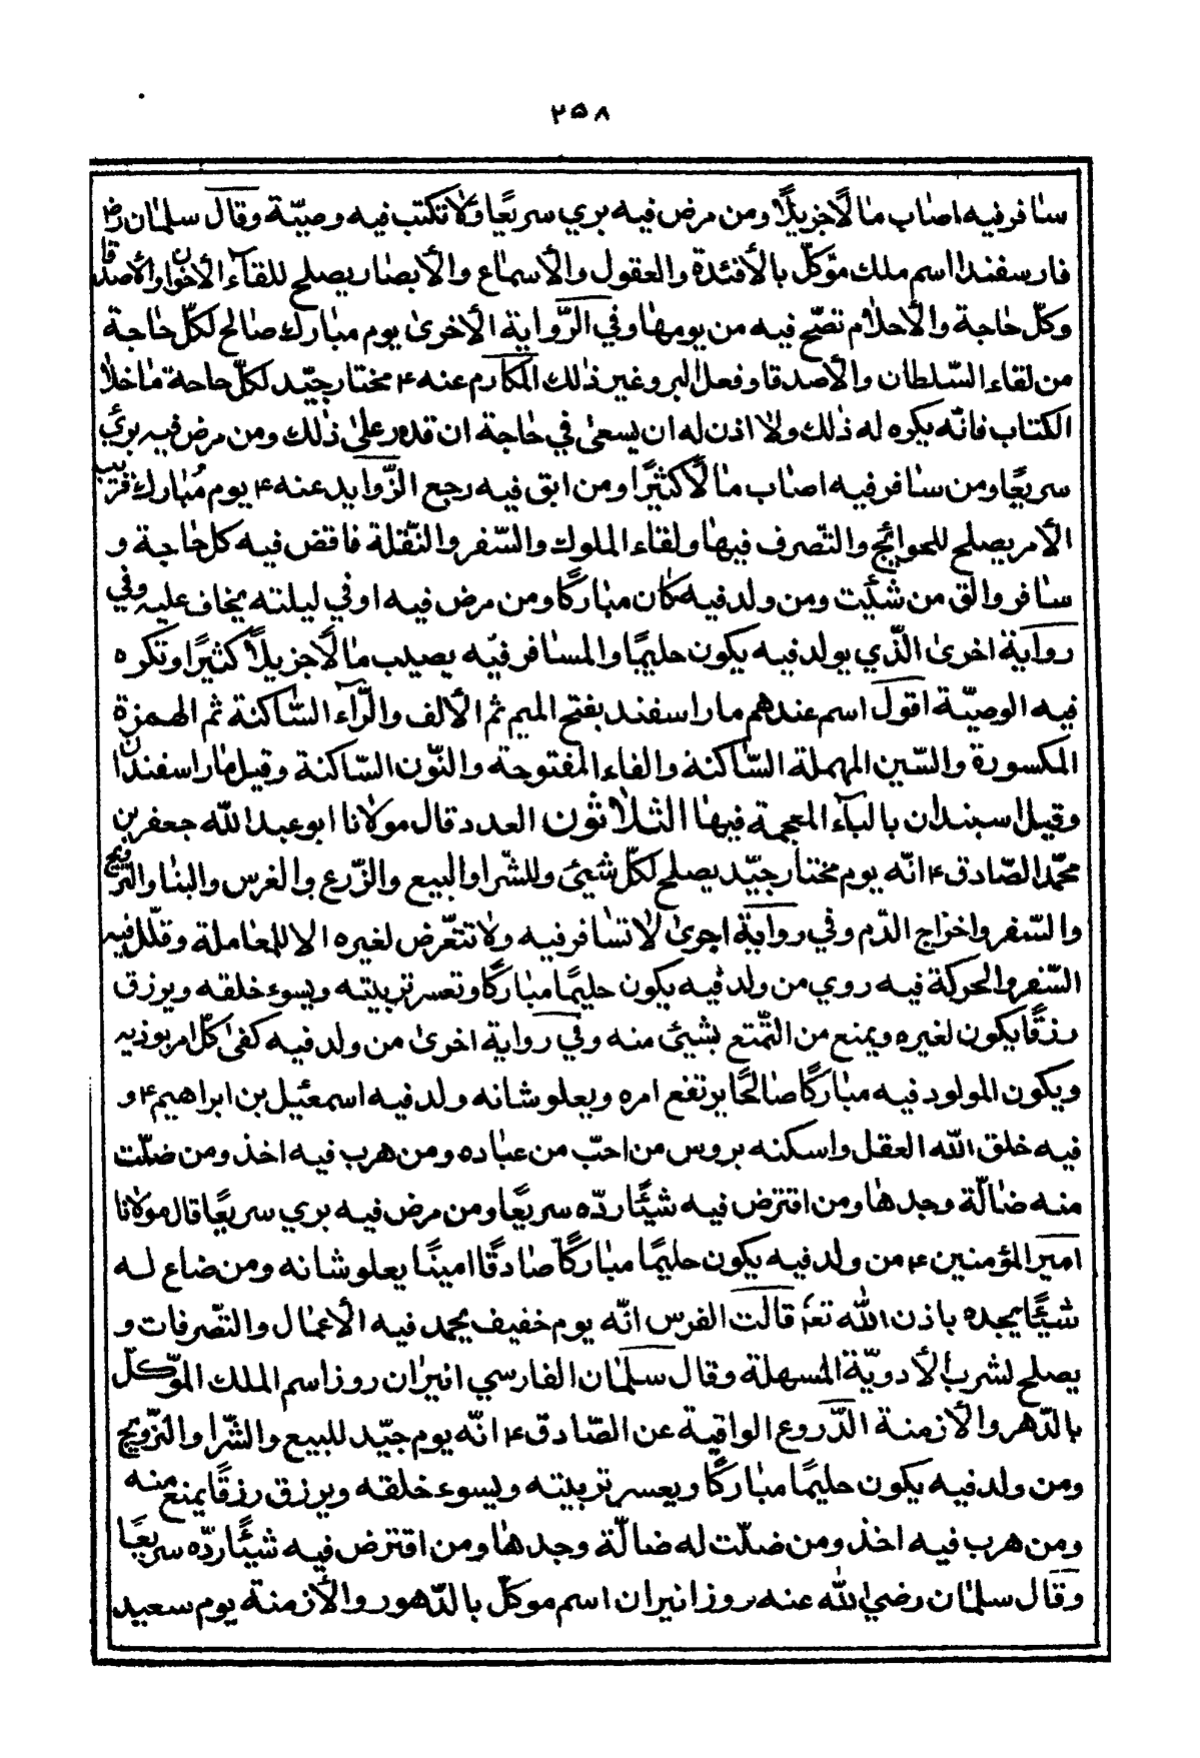 ٢٥٨
سافر فيه اصاب مالًا جزيلًا ومن مرض فيه بري سريعًا ولا تكتب فيه وصيّة وقال سلمان رض
فارسفندا اسم ملك مؤكّل بالأفئدة والعقول والأسماع والأبصار يصلح للقاء الأخوان والأصدقا
وكلّ حاجة والأحلام تصّح فيه من يومها وفي الرّواية الأخرىٰ يوم مبارك صالح لكلّ حاجة
من لقاء السّلطان والأصدقا وفعل البر وغير ذلك المكارم عنه ۴ مختار جيّد لكلّ حاجة ماخلا
الكتاب فانّه يكره له ذلك ولا اذن له ان يسعىٰ في حاجة ان قدر علىٰ ذلك ومن مرض فيه بريء
سريعًا ومن سافر فيه اصاب مالًا كثيرًا ومن ابق فيه رجع الزّوايد عنه ۴ يوم مُبارك قريب
الأمر يصلح للحوائج والتّصرف فيها ولقاء الملوك والسّفر والنّقلة فاقض فيه كل حاجة و
سافر والق من شئت ومن ولد فيه كان مباركًا ومن مرض فيه اوفي ليلته يخاف عليه وفي
رواية اخرىٰ الّذي يولد فيه يكون حليمًا والمسافر فيه يصيب مالًا جزيلًا كثيرًا وتكره
فيه الوصيّة اقول اسم عندهم ماراسفند بفتح الميم ثم الألف والرّآء السّاكنة ثم الهمزة
المكسورة والسّين المهملة السّاكنة والفاء المفتوحة والنّون السّاكنة وقيل ماراسفندان
وقيل اسبندان بالبآء المعجمة فيها الثلاثون العدد قال مولانا ابو عبد الله جعفر بن
محمّد الصّادق ۴ انّه يوم مختار جيّد يصلح لكلّ شيئ وللشّرا والبيع والزّرع والغرس والبنا والتّزويج
والسّفر واخراج الدّم وفي رواية اجرىٰ لا تسافر فيه ولا تتعّرض لغيره الا للمعاملة وقلّل فيه
السّفر والحركة فيه روي من ولد فيه يكون حليمًا مباركًا وتعسر تربيته ويسوء خلقه ويرزق
رزقًا يكون لغيره ويمنع من التّمتع بشيئ منه وفي رواية اخرىٰ من ولد فيه كفىٰ كلّ امر يوذيه
ويكون المولود فيه مباركًا صالحًا يرتفع امره ويعلو شانه ولد فيه اسمعئيل بن ابراهيم ۴ و
فيه خلق الله العقل واسكنه بروس من احبّ من عباده ومن هرب فيه اخذ ومن ضلّت
منه ضالّة وجدها ومن اقترض فيه شيئًا ردّه سريعًا ومن مرض فيه بري سريعًا قال مولانا
امير المؤمنين ۴ من ولد فيه يكون حليمًا مباركًا صادقًا امينًا يعلو شانه ومن ضاع له
شيئًا يجده باذن الله تعٰ قالت الفرس انّه يوم خفيف يحمد فيه الأعمال والتّصرفات و
يصلح لشرب الأدويّة المسهلة وقال سلمان الفارسي انيران روز اسم الملك المؤكّل
بالدّهر والأزمنة الدّروع الواقية عن الصّادق ۴ انّه يوم جيّد للبيع والشّرا والتّزويج
ومن ولد فيه يكون حليمًا مباركًا ويعسر تربيته ويسوء خلقه ويرزق رزقًا يمنع منه
ومن هرب فيه اخذ ومن ضلّت له ضالّة وجدها ومن اقترض فيه شيئًا ردّه سريعًا
وقال سلمان رضي الله عنه روز انيران اسم موكّل بالدّهور والأزمنة يوم سعيد